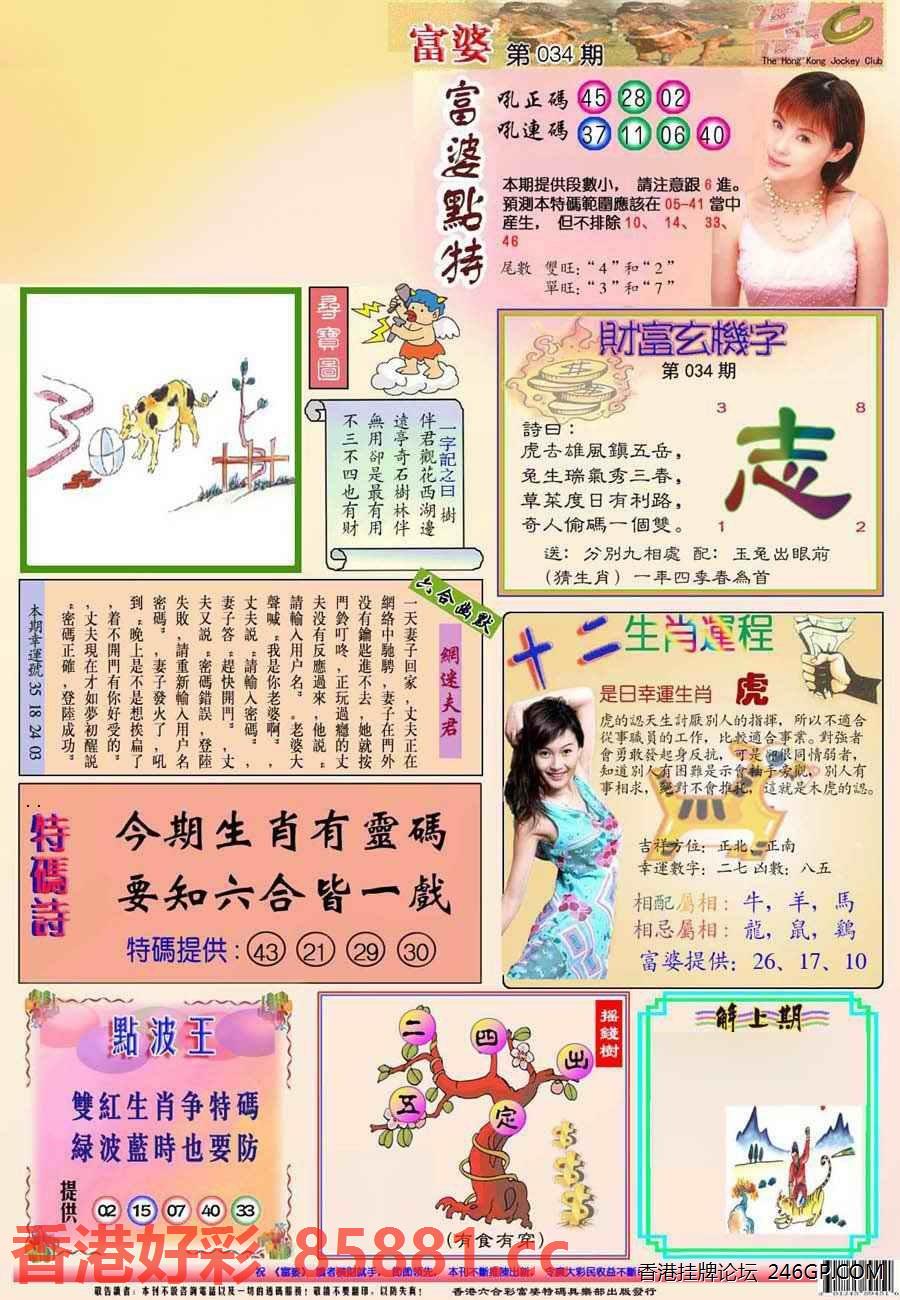 富婆 第 034 期
The Hong Kong Jockey Club
富婆點特
吼正碼 45 28 02
吼連碼 37 11 06 40
本期提供段數小， 請注意跟 6 進。
預測本特碼範圍應該在 05-41 當中
産生， 但不排除 10、 14、 33、
46
尾數 雙旺：“4”和“2”
單旺：“3”和“7”
尋寶圖
一字記之曰 樹
伴君觀花西湖邊
遠亭奇石樹林伴
無用卻是最有用
不三不四也有財
財富玄機字
第 034 期
詩曰：
虎去雄風鎮五岳，
兔生瑞氣秀三春，
草菜度日有利路，
奇人偷碼一個雙。
3 8
志
1 2
送： 分別九相處 配： 玉兔出眼前
（猜生肖） 一年四季春為首
六合幽默
網迷夫君
一天妻子回家，丈夫正在
網絡中馳騁，妻子在門外
没有鑰匙進不去，她就按
門鈴叮咚，正玩過癮的丈
夫没有反應過來，他説“
請輸入用户名”。老婆大
聲喊“我是你老婆啊”，
丈夫説“請輸入密碼”，
妻子答“趕快開門”，丈
夫又説“密碼錯誤，登陸
失敗，請重新輸入用户名
密碼”，妻子發火了，吼
到“晚上是不是想挨扁了
，着不開門有你好受的”
，丈夫現在才如夢初醒説
“密碼正確，登陸成功”
本期幸運號 35 18 24 03
十二生肖運程
是日幸運生肖 虎
虎的認天生討厭別人的指揮， 所以不適合
從事職員的工作，比較適合事業。對強者
會勇敢發起身反抗，可是卻很同情弱者，
知道別人有困難是示會袖手旁觀，別人有
事相求，絕對不會推托，這就是木虎的認。
吉祥方位：正北、正南
幸運數字：二七 凶數：八五
相配屬相：牛，羊，馬
相忌屬相：龍，鼠，鷄
富婆提供：26、17、10
特碼詩
今期生肖有靈碼
要知六合皆一戲
特碼提供：43 21 29 30
點波王
雙紅生肖争特碼
緑波藍時也要防
提供 02 15 07 40 33
摇錢樹
二 四 出
五 定
（有食有穿）
解上期
香港好彩 85881.cc
香港挂牌论坛 246GP.COM
敬告讀者：本刊不設咨詢電話以及一切的透碼服務！敬請不要翻印，以防失真！
香港六合彩富婆特碼具樂部出版發行